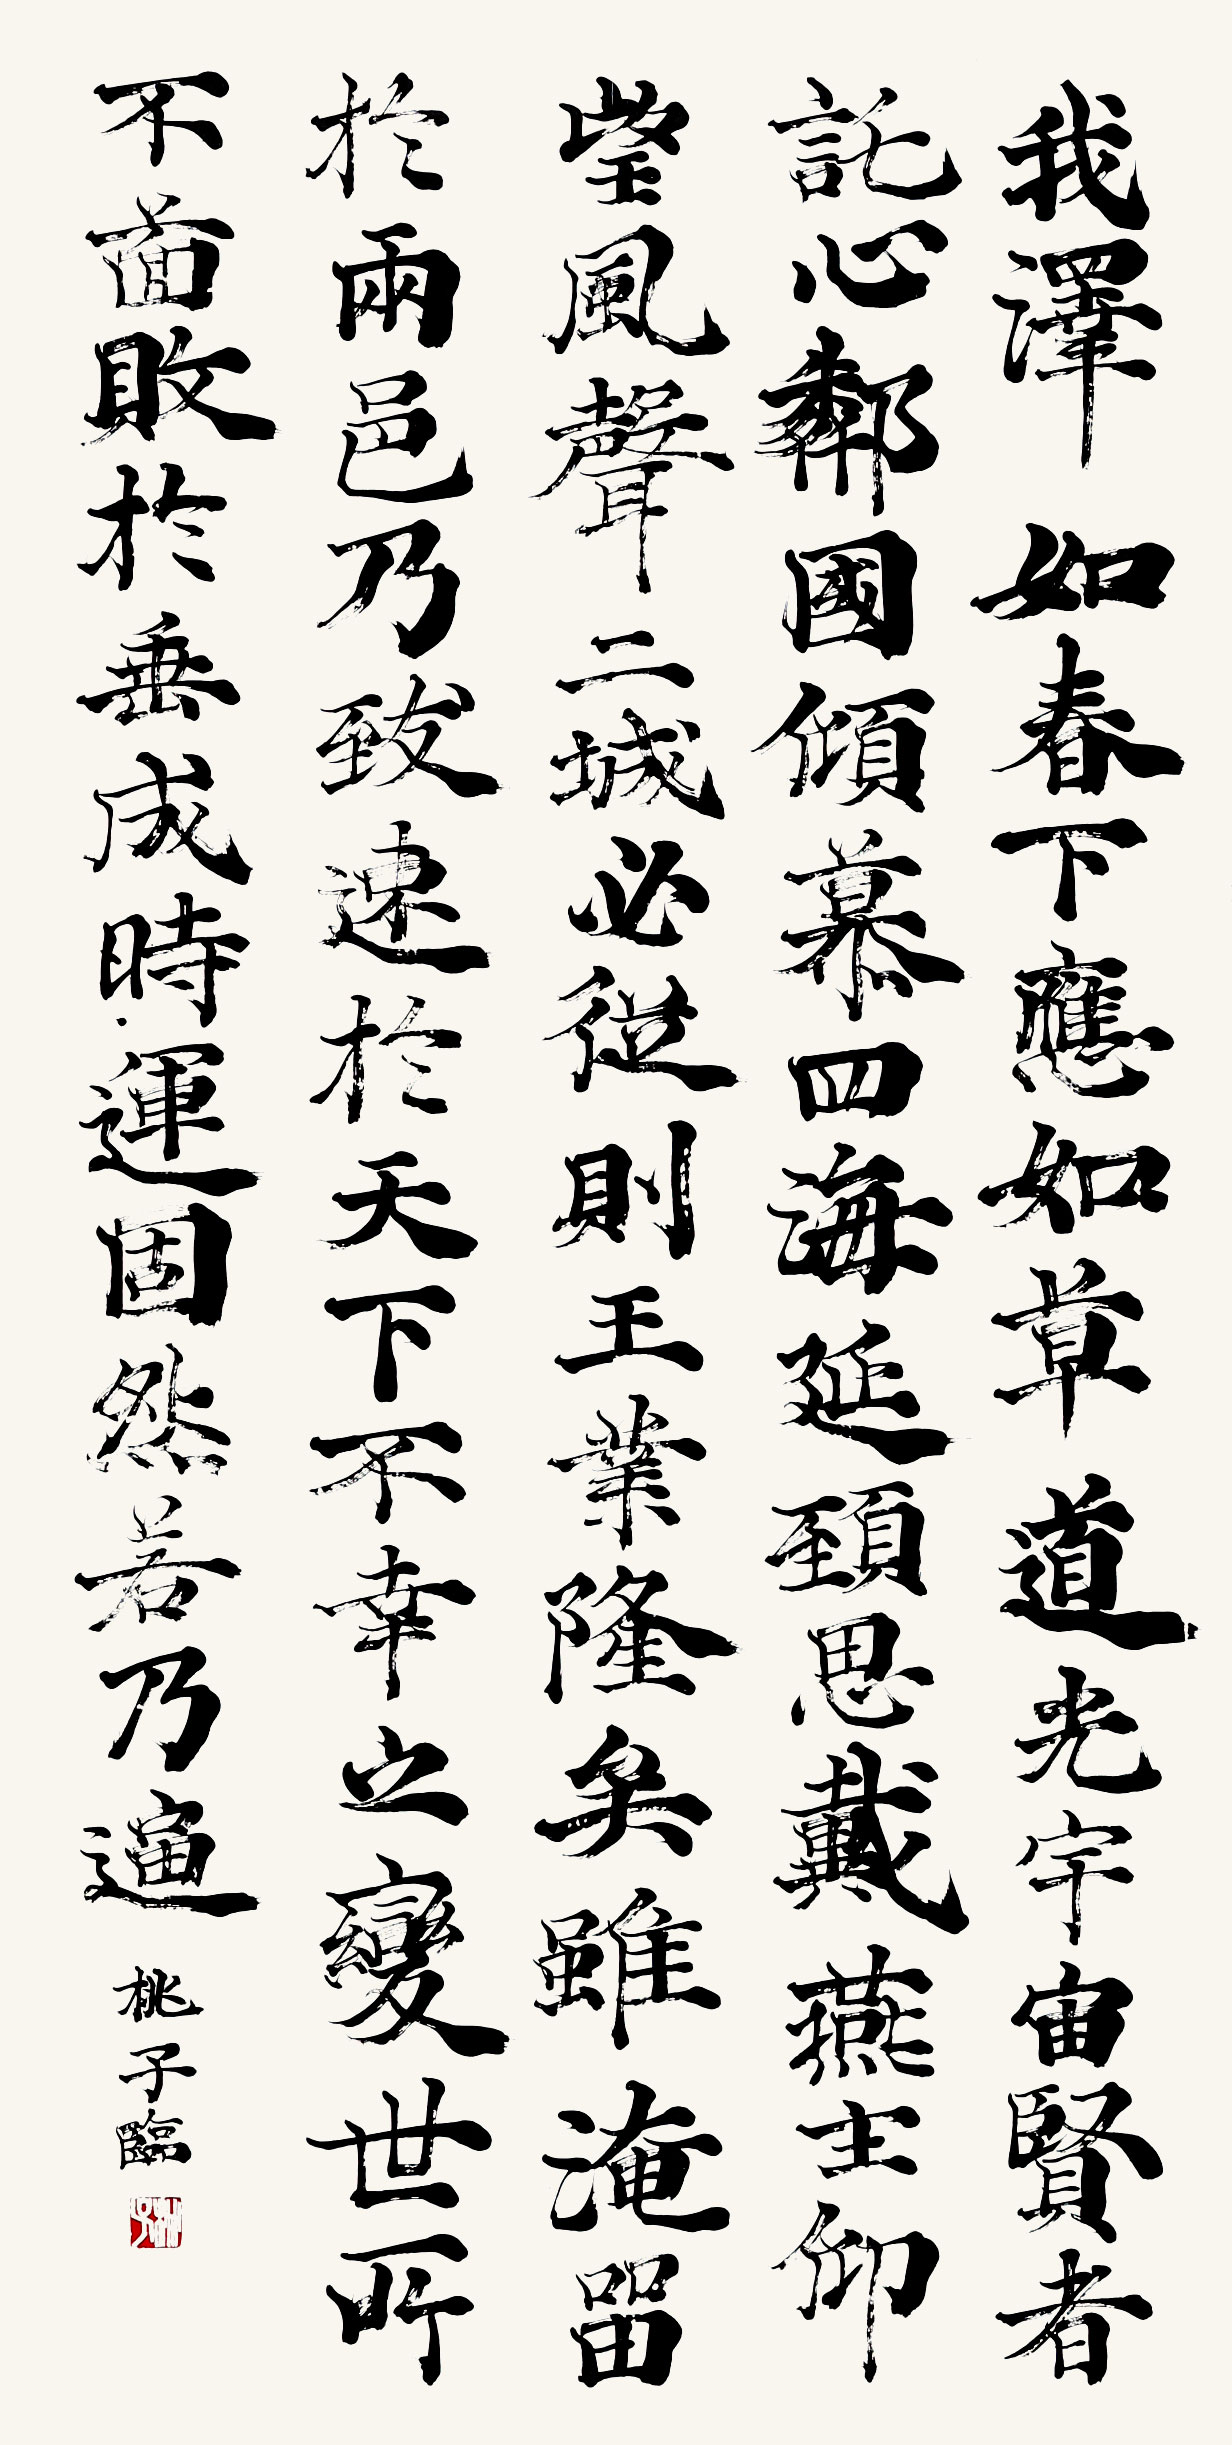 我澤如春下應如草道光宇宙賢者
託心鄰國傾慕四海延頸思戴燕主仰
望風聲二城必從則王業隆矣雖淹留
於兩邑乃致速於天下不幸之變世所
不啚敗於垂成時運固然若乃逼
桃子臨